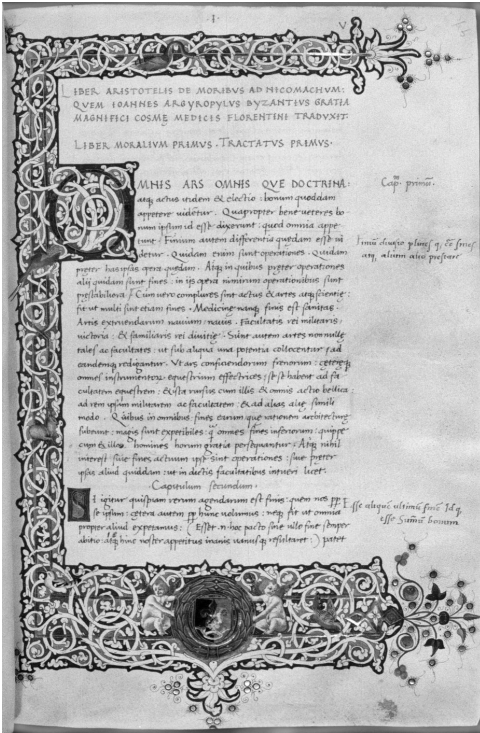 ·I·
V
LIBER ARISTOTELIS DE MORIBUS AD NICOMACHUM:
QUEM IOANNES ARGYROPYLUS BYZANTIUS GRATIA
MAGNIFICI COSMĘ MEDICIS FLORENTINI TRADUXIT·
LIBER MORALIUM PRIMUS · TRACTATUS PRIMUS·
OMNIS ARS OMNIS QUE DOCTRINA:
atq; actus itidem & electio: bonum quoddam
appetere videtur. Quapropter bene veteres bo
num ipsum id esse dixerunt: quod omnia appe
tunt. Finium autem differentia quedam esse vi
detur. Quidam enim sunt operationes. Quidam
preter has ipsas opera quedam. Atq; in quibus pręter operationes
alij quidam sunt fines: in ijs opera nimirum operationibus sunt
prestabiliora. Cum vero complures sint actus & artes atq; scientie:
fit ut multi sint etiam fines. Medicine nanq; finis est sanitas.
Artis extruendarum navium navis. Facultatis rei militaris
victoria: & familiaris rei divitię. Sunt autem artes nonnullę
tales ac facultates: ut sub aliqua una potentia collocentur: ad
eandemq; redigantur. Ut ars conficiendorum frenorum: ceteręq;
omnes instrumentorum equestrium effectrices: sese habent ad fa
cultatem equestrem: & ista rursus cum illis & omnis actio bellica:
ad rem ipsam militarem ac facultatem: & ad alias alię simili
modo. Quibus in omnibus fines earum que rationem architectonicę
subeunt: magis sunt expetibiles: q̃ omnes fines inferiorum: quippe
cum & illos homines horum gratia persequantur. Atq; nihil
interest sive fines actuum ipsę sint operationes: sive preter
ipsas aliud quiddam: ut in dictis facultatibus intueri licet.
Capitulum secundum.
SI igitur quispiam rerum agendarum est finis: quem nos pp
se ipsum: cetera autem pp hunc volumus: neq; fit ut omnia
propter aliud expetamus: (Esset .n. hoc pacto sine ullo fine semper
abitio: atq; hinc noster appetitus inanis vanusq; resultaret:) patet
Cap. primũ.
Finiũ
atq; alium alio prestare
Esse aliquẽ ultimũ finẽ Idq;
esse Sum̃ũ bonum